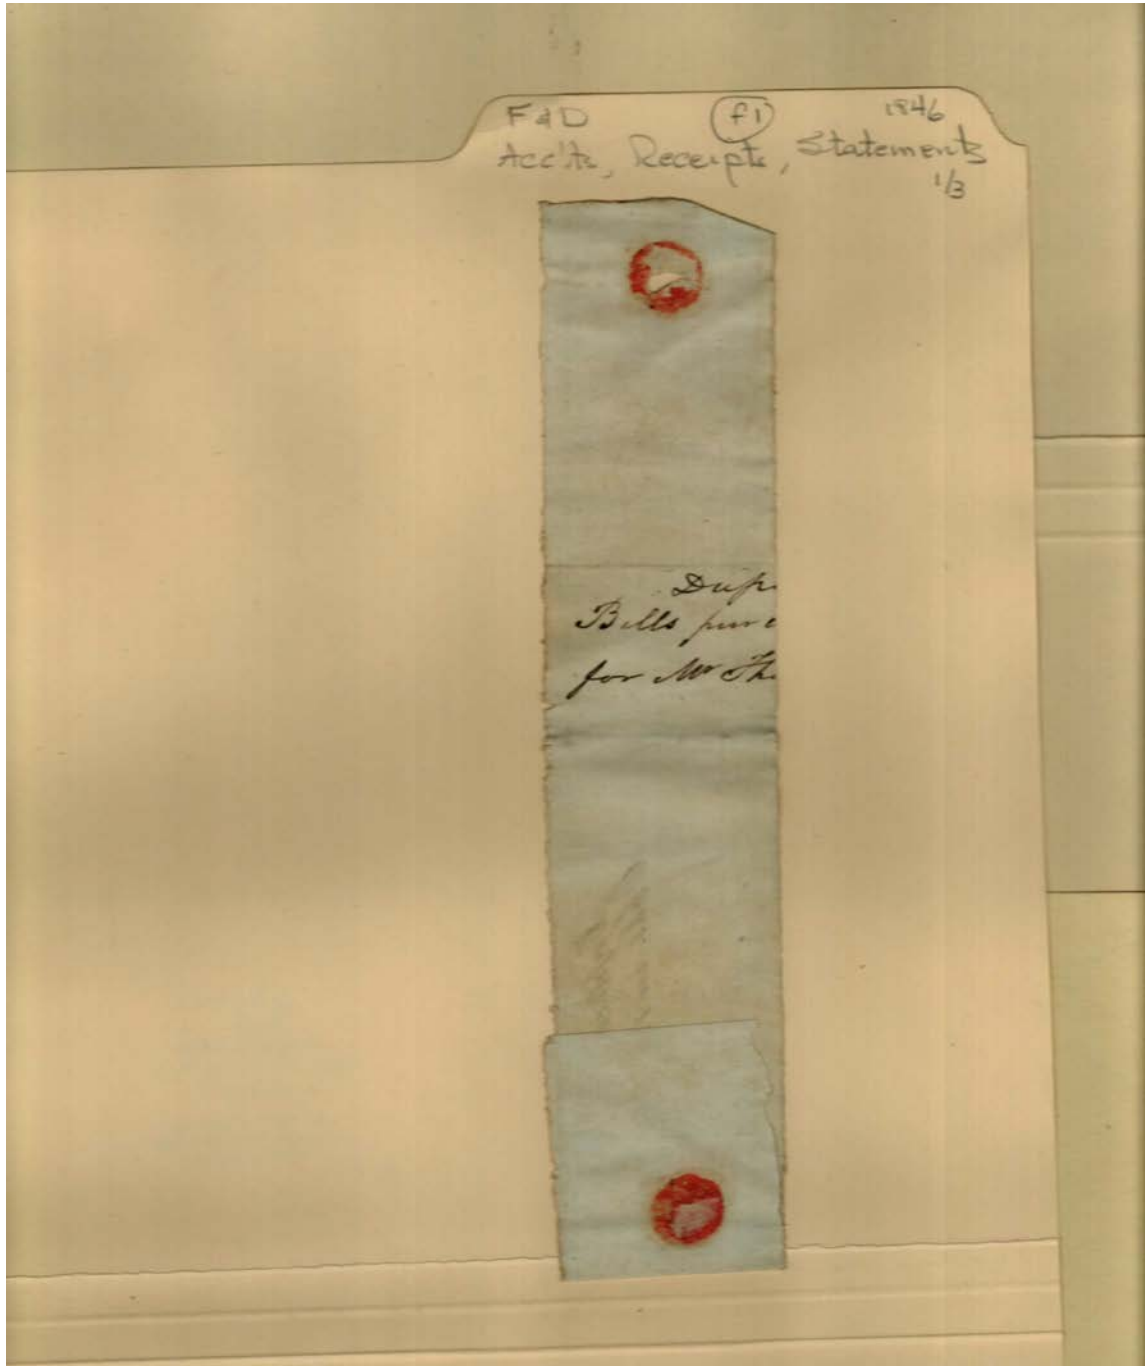 F&D (f1) 1846
Acc'ts, Receipts, Statements
1/3
Dup
Bills purc
for Mr Tho